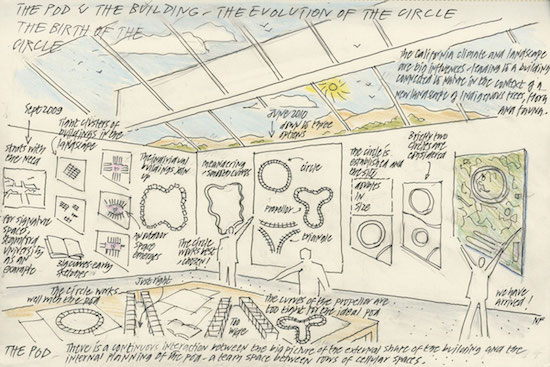 THE POD & THE BUILDING - THE EVOLUTION OF THE CIRCLE
THE BIRTH OF THE
CIRCLE
THE CALIFORNIA CLIMATE AND LANDSCAPE
ARE BIG INFLUENCES - LEADING TO A BUILDING
CONNECTED TO NATURE IN THE CONTEXT OF A
NEW LANDSCAPE OF INDIGENOUS TREES, FLORA
AND FAUNA.
Sept 2009
STARTS WITH
THE NEED
FOR SIGNATURE
SPACES
STANFORD
UNIVERSITY
AS AN
EXAMPLE
TIGHT CLUSTERS OF
BUILDINGS IN THE
LANDSCAPE
AN INNER
SPACE
EMERGES
BIG IDEAS EARLY
SKETCHES
THE INDIVIDUAL
BUILDINGS JOIN
UP
MEANDERING
SMOOTH CURVES
THE CIRCLE
WORKS BEST
- CHOSEN!
JUNE 2010
DOWN TO THREE
OPTIONS
CIRCLE
PROPELLOR
TRIANGLE
THE CIRCLE IS
ESTABLISHED AND
THE SITE
IN
SIZE
BRIEFLY TWO
CIRCLES ARE
CONSIDERED
WE HAVE
ARRIVED!
NF
THE CIRCLE WORKS
WELL WITH THE POD
JUST RIGHT
TOO
WIDE
THE CURVES OF THE PROPELLOR ARE
TOO TIGHT FOR THE IDEAL POD
THE POD
THERE IS A CONTINUOUS INTERACTION BETWEEN THE BIG PICTURE OF THE EXTERNAL SHAPE OF THE BUILDING AND THE
INTERNAL PLANNING OF THE POD - A TEAM SPACE BETWEEN ROWS OF CELLULAR SPACES.